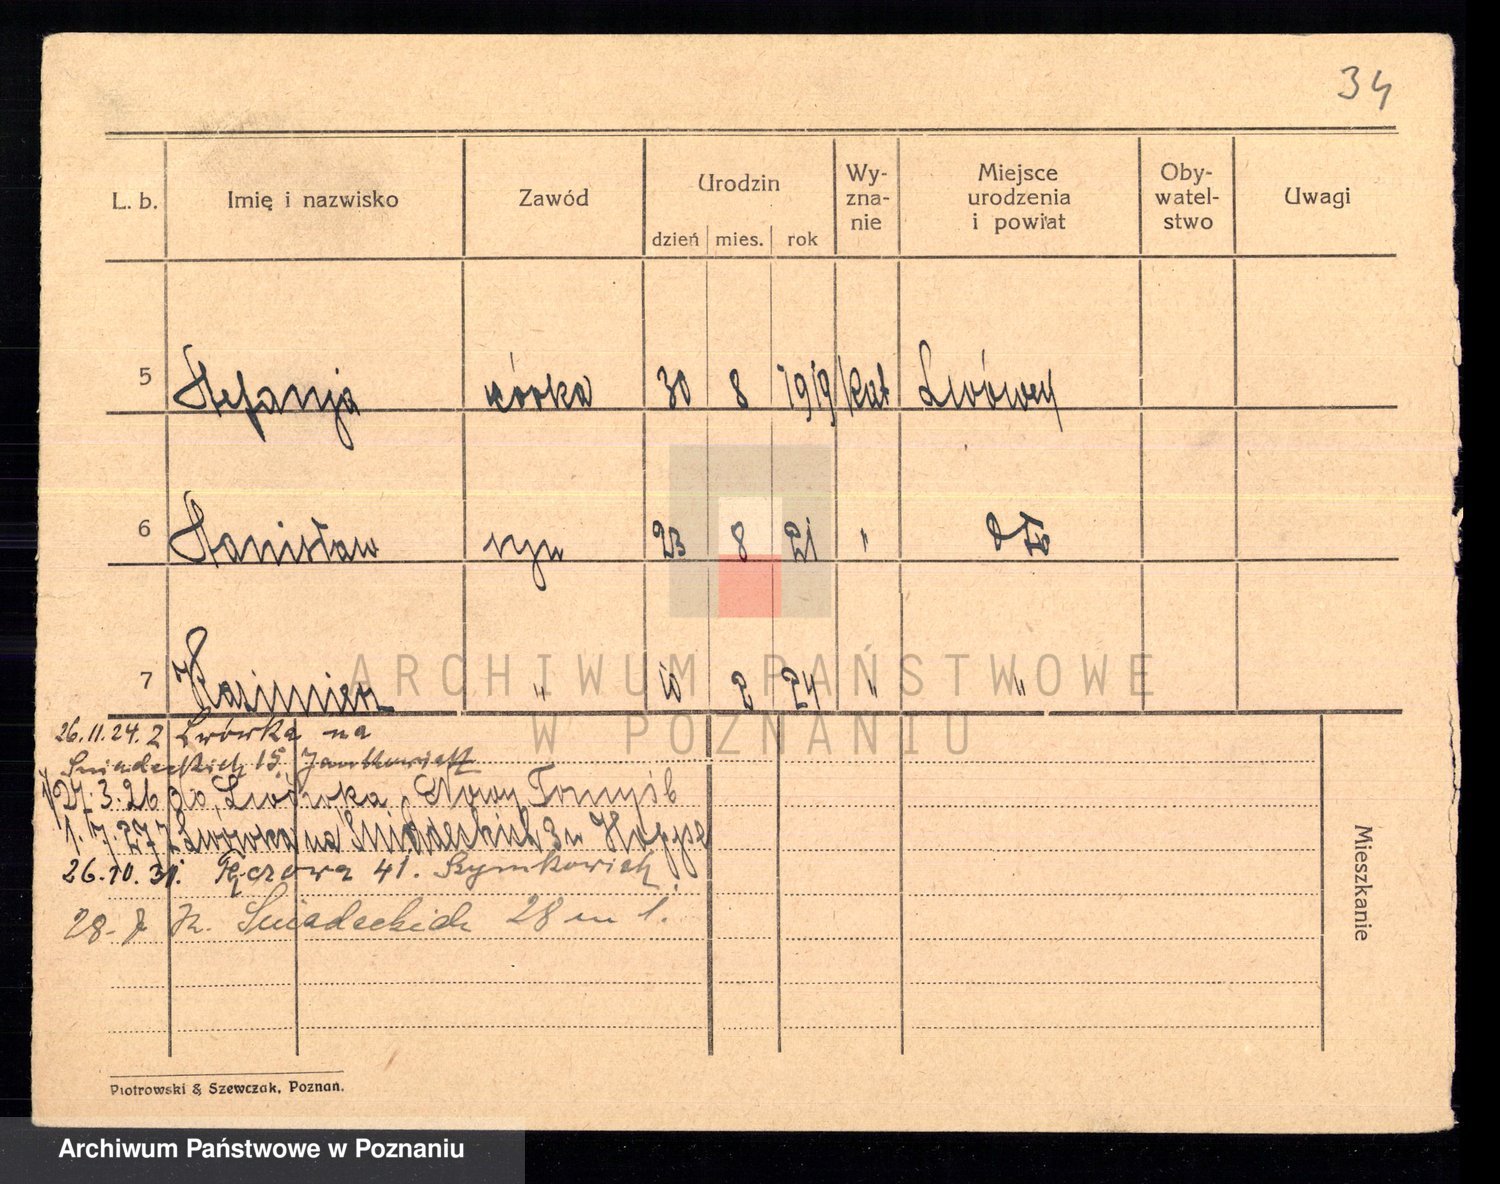 34
L. b. Imię i nazwisko Zawód Urodzin dzień mies. rok Wy-zna-nie Miejsce urodzenia i powiat Oby-watel-stwo Uwagi
5 Stefanja córka 30 8 1919 kat Lwówey
6 Stanisław syn 23 8 21 " dto
7 Kasimierz " 10 2 24 " "
ARCHIWUM PAŃSTWOWE
W POZNANIU
26.11.24. z Lwówka na
Sniadeckich 15. Jankowiak
27.3.26 do Lwówka, Nowy Tomyśl
1.7.27 z Lwówka na Sniadeckich 3 u Hoppe
26.10.31. Tęczowa 41. Szymkowiak.
28. Sniadeckich 28 m 1.
Mieszkanie
Piotrowski & Szewczak, Poznań.
Archiwum Państwowe w Poznaniu